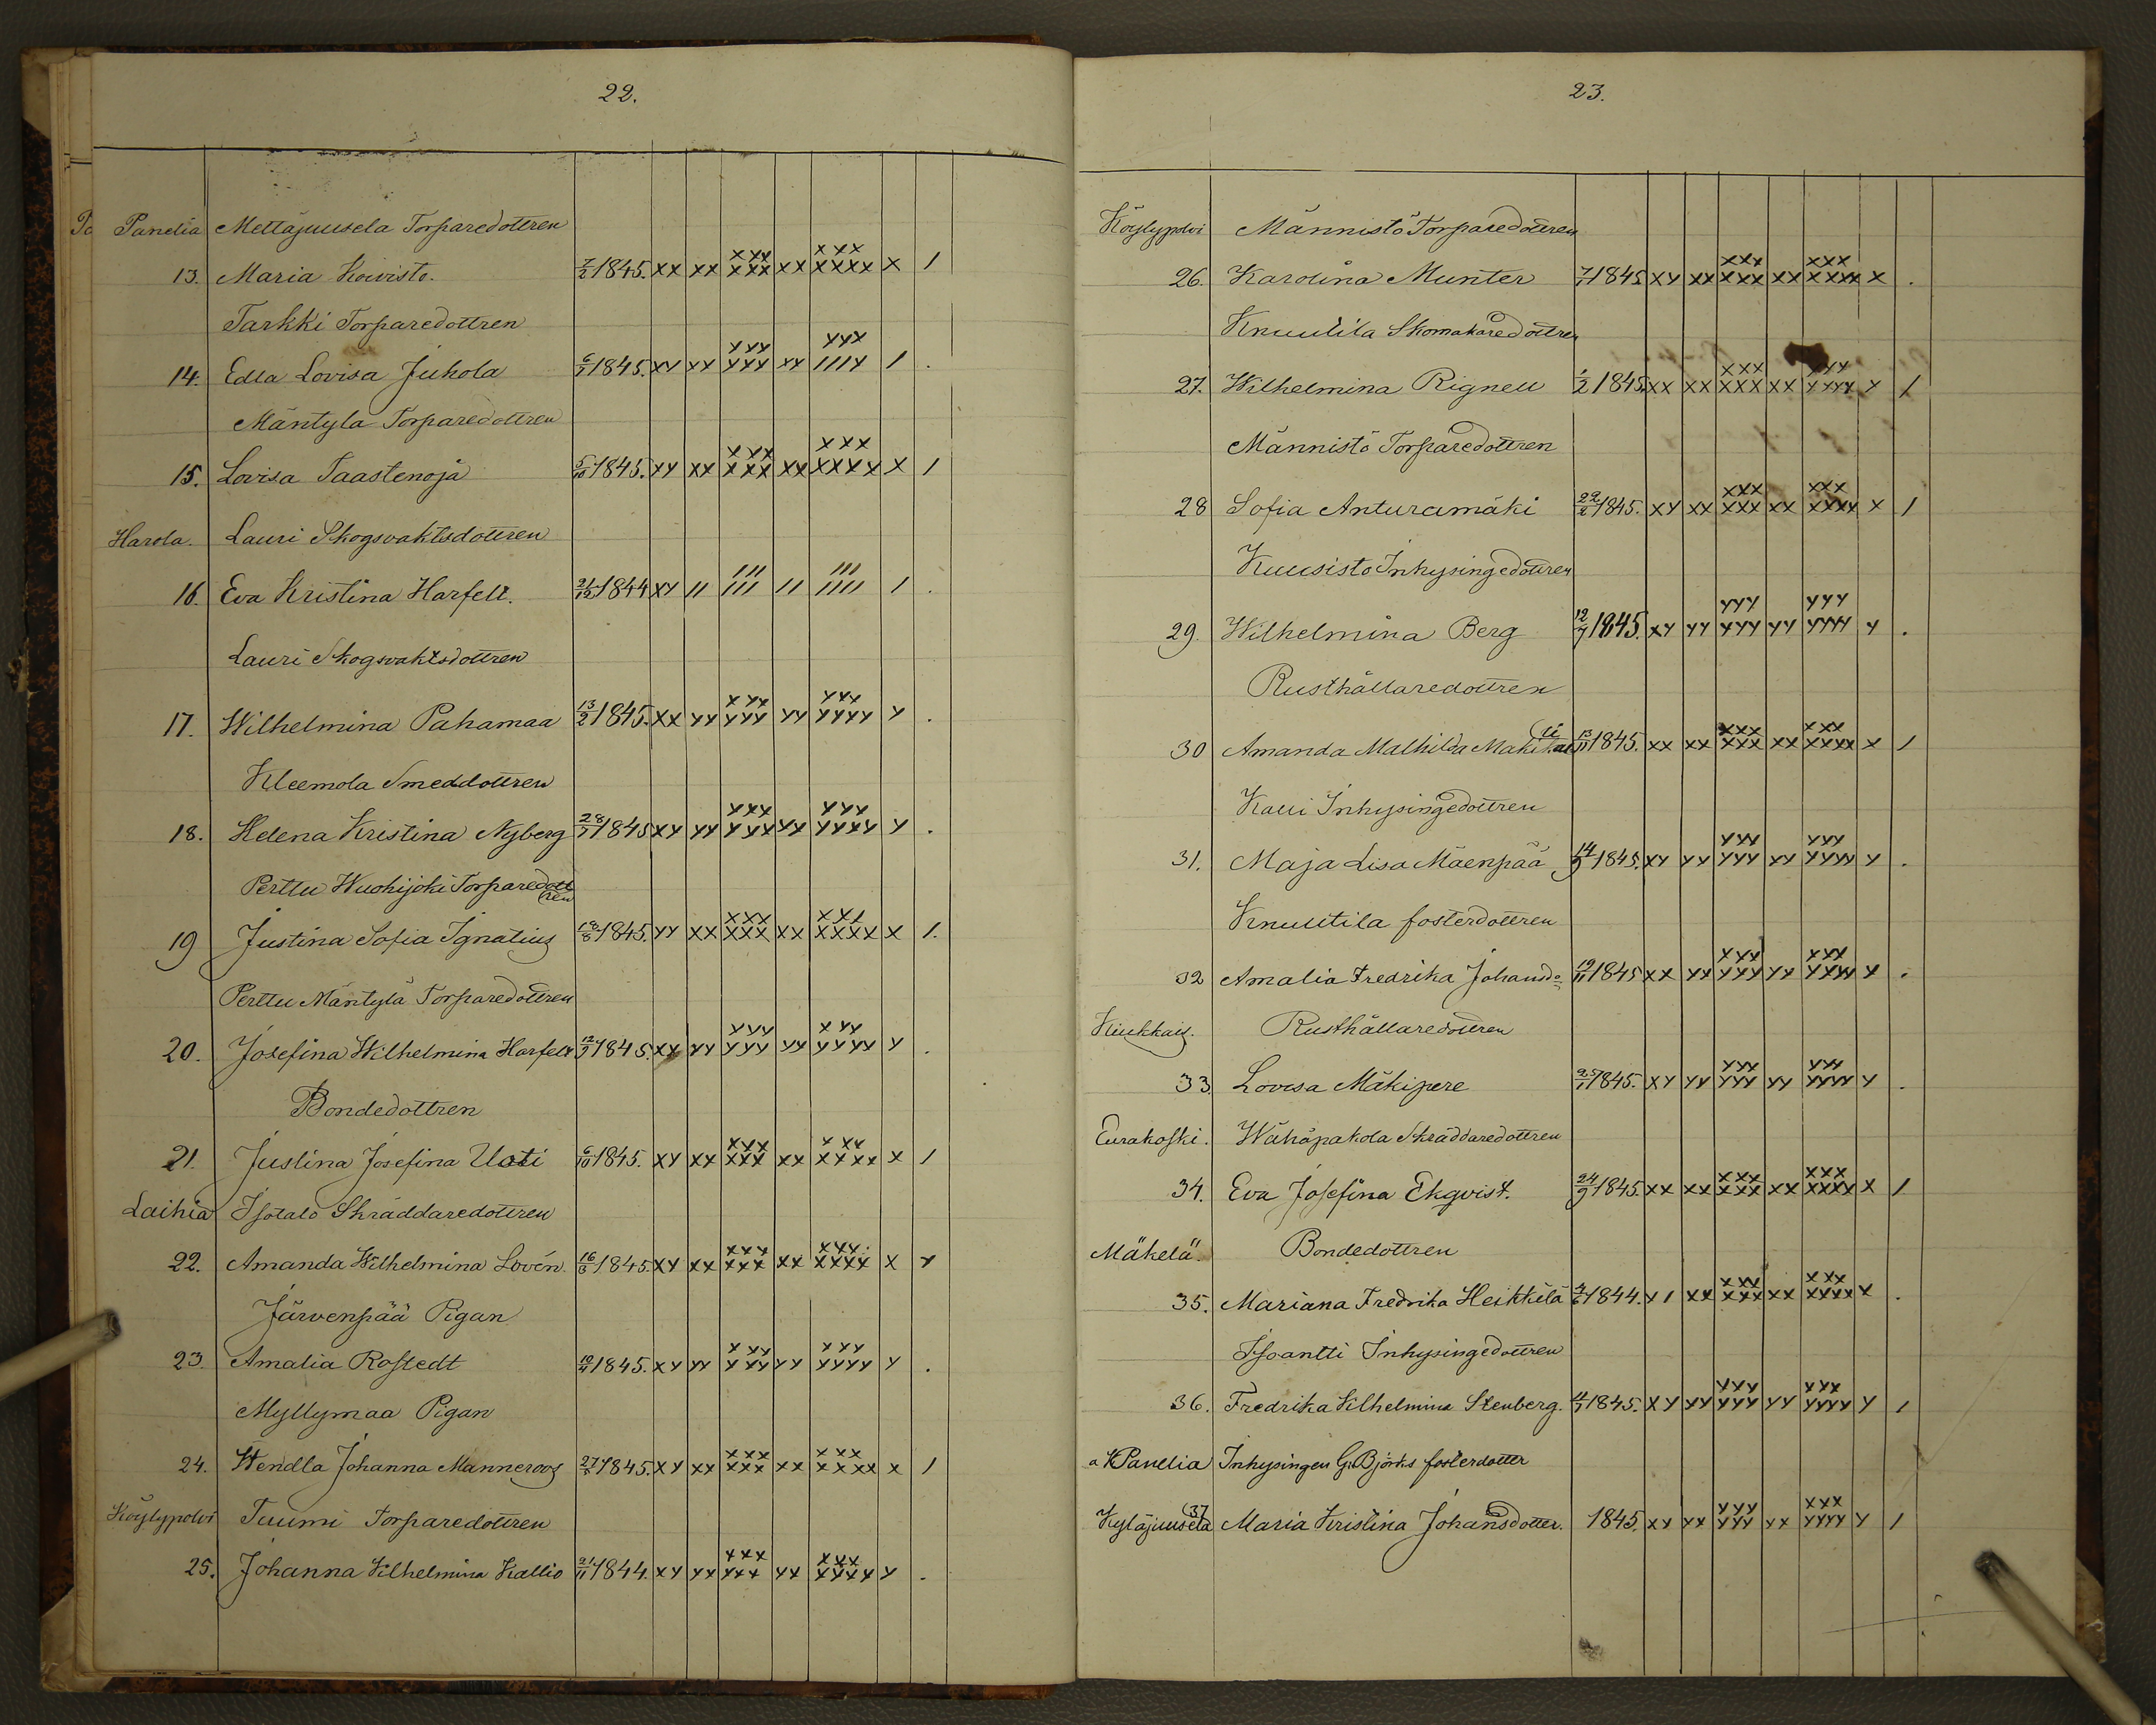 22.
Panelia Mettäjuusela Torparedottren
13. Maria Koivisto. 7/2 1845. xx xx xxx xxx xx xxx xxxx x 1
Tarkki Torparedottren
14. Edla Lovisa Juhola 1845. xy xx yyy yyy xy yyx ///y 1 .
Mäntyla Torparedottren
15. Lovisa Taastenoja 5/10 1845. xy xx xyx xxx xx xxx xxxx x 1
Harola. Lauri Skogsvaktsdottren
16. Eva Kristina Harfelt. 21/12 1844 xy // /// /// // /// //// 1 .
Lauri Skogsvaktsdottren
17. Wilhelmina Pahamaa 13/2 1845. xx yy xyx yyy yy yyy yyyy y .
Kleemola Smeddottren
18. Helena Kristina Nyberg 1845 xy yy yyx yyx yy yyy yyyy y .
Perttu Wuohijoki Torparedottren
19 Justina Sofia Ignatius 18/8 1845. yy xx xxx xxx xx xxx xxxx x 1.
Perttu Mäntylä Torparedottren
20. Josefina Wilhelmina Harfelt 1845. xy yy yyy yyy yy xyy yyyy y .
Bondedottren
21. Justina Josefina Uoti 6/10 1845. xy xx xxx xxx xx xxx xxxx x 1
Laihia Isotalo Skräddaredottren
22. Amanda Wilhelmina Lovén. 1845. xy xx xxx xxx xx xxx xxxx x x
Järvenpää Pigan
23. Amalia Rostedt 1845. xy yy xyy yyy yy yyy yyyy y .
Myllymaa Pigan
24. Wendla Johanna Manneroos 1845. xy xx xxx xxx xx xxx xxxx x 1
Köylypolvi Tuumi Torparedottren
25. Johanna Wilhelmina Kallio 21/11 1844. xy yx xxx yxx yx xxx yyyy y .
23.
Köylypolvi Männistö Torparedottren
26. Karolina Munter 1845 xy xx xxx xxx xx xxx xxxx x .
Knuutila Skomakaredottren
27. Wilhelmina Rignell 1/2 1845. xx xx xxx xxx xx xyy xxyy x 1
Männistö Torparedottren
28 Sofia Anturamäki 22/2 1845. xy xx xxx xxx xx xxx xxxx x 1
Kuusisto Inhysingedottren
29. Wilhelmina Berg 12/7 1845. xy yy yyy yyy yy yyy yyyy y .
Rusthållaredottren
30 Amanda Mathilda 13/11 1845. xx xx xxx xxx xx xxx xxxx x 1
Kauri Inhysingedottren
31. Maja Lisa Mäenpää 14/9 1845. xy yy yyy yyy yy yyy yyyy y .
Knuutila fosterdottren
32 Amalia Fredrika Johansd. 19/11 1845 xx yx xxx yyx yx xxx yyyy x .
Kiukkais. Rusthållaredottren
33. Lovisa Mäkipere 25/1 1845. xy yy yyy yyy yy yyy yyyy y .
Eurakoski. Wähäpakola Skräddaredottren
34. Eva Josefina Ekqvist. 24/9 1845. xx xx xxx xxx xx xxx xxxx x 1
Mäkelä. Bondedottren
35. Mariana Fredrika Heikkilä 1844. y1 xx xxx xxx xx xxx xxxx x .
Isoantti Inhysingedottren
36. Fredrika Wilhelmina Stenberg. 1845. xy yy yyy yyy yy yyy yyyy y 1
Panelia Inhysingen G. Björks fosterdotter
Kyläjuusela 37 Maria Kristina Johansdotter. 1845. xy yx yyy yyy yx xxx yyyy y 1